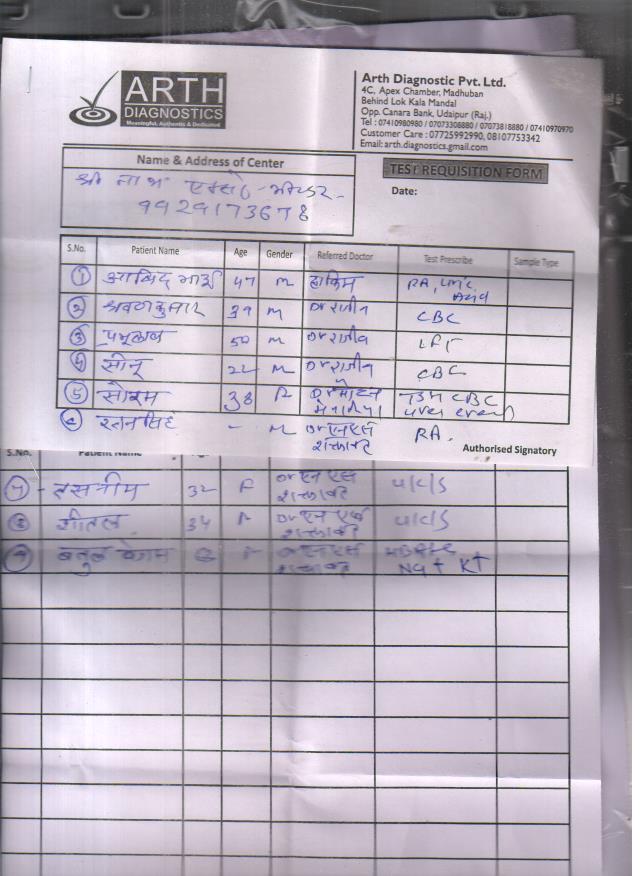 ARTH
DIAGNOSTICS
Meaningful, Authentic & Dedicated
Arth Diagnostic Pvt. Ltd.
4C, Apex Chamber, Madhuban
Behind Lok Kala Mandal
Opp. Canara Bank, Udaipur (Raj.)
Tel : 07410980980 / 07073308880 / 07073818880 / 07410970970
Customer Care : 07725992990, 08107753342
Email: arth.diagnostics.gmail.com
Name & Address of Center
श्री नाथ
9929173678
TEST REQUISITION FORM
Date:
S.No. Patient Name Age Gender Referred Doctor Test Prescribe Sample Type
1 47 M हाकिम RA, Uric Acid
2 श्रवण कुमार 39 M Dr राजीव CBC
3 50 M Dr राजीव LFT
4 सोनू 22 M Dr राजीव CBC
5 38 F Dr मोहन TSH CBC
6 रतन सिंह - M Dr एन एस शक्तावत RA.
Authorised Signatory
S.No. Patient Name
7 तसलीम 32 F Dr एन एस शक्तावत
8 शीतल 34 F Dr एन एस शक्तावत
9 बतुल बेगम F Dr एन एस शक्तावत Na+ K+